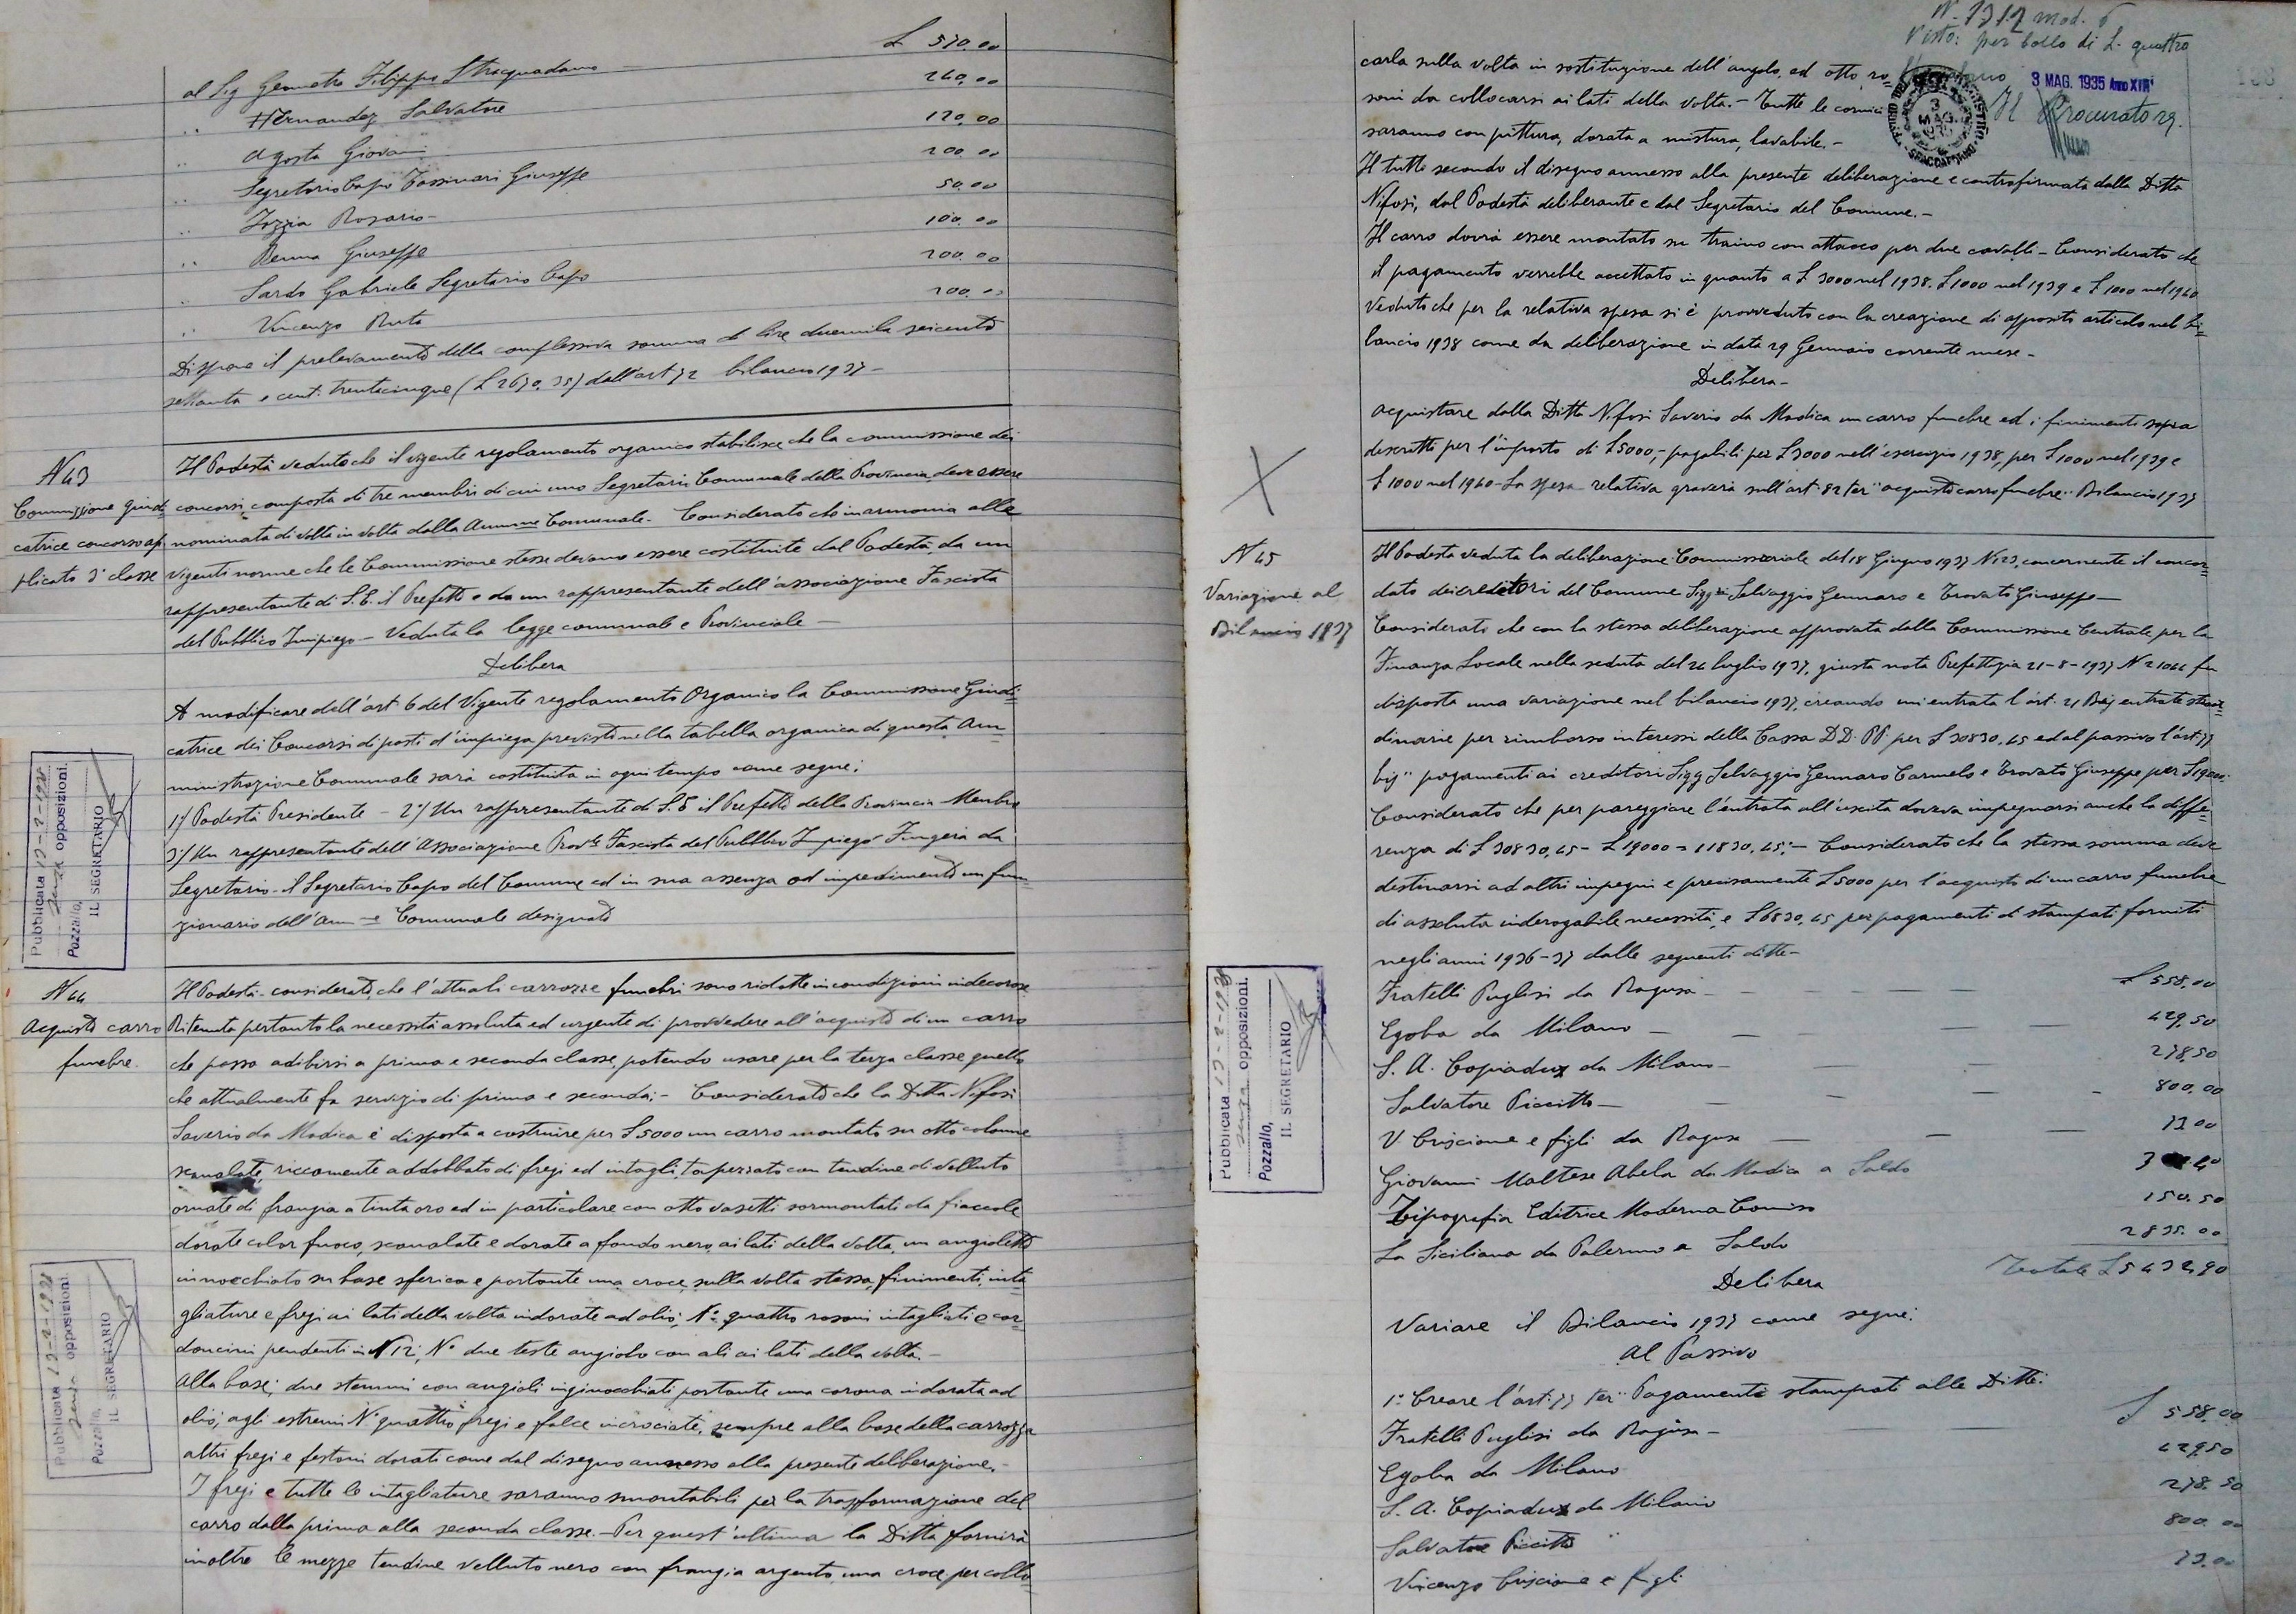 £ 570.00
al Sig Geometra Filippo Stracquadamo 260,00
" Hernandez Salvatore 120,00
" Agosta Giovanni 200.00
" Segretario Capo Tassinari Giuseppe 50.00
" Iozzia Rosario - 100.00
" Renna Giuseppe 200.00
" Sardo Gabriele Segretario Capo 200.00
" Vincenzo Ruta
Dispone il prelevamento della complessiva somma di lire duemila seicento
settanta e cent. trentacinque (£ 2670.35) dall'art 72 bilancio 1937 -
N 43
Commissione giudi-
catrice concorso ap-
plicato 3ª classe
Il Podestà veduto che il vigente regolamento organico stabilisce che la commissione dei
concorsi, composta di tre membri di cui uno Segretario Comunale della Provincia, deve essere
nominata di volta in volta dalla Amm.ne Comunale - Considerato che in armonia alle
vigenti norme che le Commissione stesse devono essere costituite dal Podestà, da un
rappresentante di S.E. il Prefetto e da un rappresentante dell'associazione Fascista
del Pubblico Impiego - Veduta la legge comunale e Provinciale -
Delibera
A modificare dell'art 6 del Vigente regolamento Organico la Commissione Giudi-
catrice dei Concorsi di posti d'impiego previsti nella tabella organica di questa Am-
ministrazione Comunale sarà costituita in ogni tempo come segue:
1°/ Podestà Presidente - 2°/ Un rappresentante di S.E il Prefetto della Provincia Membro
3°/ Un rappresentante dell'Associazione Prov.le Fascista del Pubblico Impiego Fungerà da
Segretario - il Segretario Capo del Comune ed in sua assenza od impedimento un fun-
zionario dell'Am-ne Comunale designato
Pubblicata 13-2-1938
senza opposizioni.
Pozzallo,
IL SEGRETARIO
N 44
Acquisto carro
funebre.
Il Podestà - considerato, che l'attuali carrozze funebri sono ridotte in condizioni indecorose
Ritenuta pertanto la necessità assoluta ed urgente di provvedere all'acquisto di un carro
che possa adibirsi a prima e seconda classe, potendo usare per la terza classe quello
che attualmente fa servizio di prima e seconda; - Considerato che la Ditta Nifosi
Saverio da Modica è disposta a costruire per £ 5000 un carro montato su otto colonne
scanalate, riccamente addobbato di fregi ed intagli, tapezzato con tendine di velluto
ornate di frangia a tinta oro ed in particolare con otto vasetti sormontati da fiaccole
dorate color fuoco, scanalate e dorate a fondo nero, ai lati della volta, un angioletto
innocchiato su base sferica e portante una croce, sulla volta stessa, finimenti, inta-
gliature e fregi ai lati della volta indorate ad olio; N° quattro rosoni intagliati e cor-
doncini pendenti in N 12; N° due teste angiolo con ali ai lati della volta. -
Alla base; due stemmi con angioli inginocchiati portante una corona indorata ad
olio; agli estremi N° quattro fregi e falce incrociate, sempre alla base della carrozza
altri fregi e festoni dorati come dal disegno annesso alla presente deliberazione. -
I fregi e tutte le intagliature saranno smontabili per la trasformazione del
carro dalla prima alla seconda classe. - Per quest'ultima la Ditta fornirà
inoltre le mezze tendine velluto nero con frangia argento, una croce per collo-
Pubblicata 13-2-1938
senza opposizioni
Pozzallo,
IL SEGRETARIO
N. 1312 mod. 6
Visto: per bollo di L. quattro
3 MAG. 1935 Anno XIII
Il Procuratore
carla sulla volta in sostituzione dell'angolo, ed otto ro-
soni da collocarsi ai lati della volta. - Tutte le cornici
saranno con pittura, dorata a mistura, lavabile. -
Il tutto secondo il disegno annesso alla presente deliberazione e controfirmata dalla Ditta
Nifosi, dal Podestà deliberante e dal Segretario del Comune. -
Il carro dovrà essere montato su traino con attacco per due cavalli - Considerato che
il pagamento verrebbe accettato in quanto a £ 3000 nel 1938. £ 1000 nel 1939 e £ 1000 nel 1940
Veduto che per la relativa spesa si è provveduto con la creazione di apposito articolo nel bi-
lancio 1938 come da deliberazione in data 29 Gennaio corrente mese -
Delibera -
Acquistare dalla Ditta Nifosi Saverio da Modica un carro funebre ed i finimenti sopra
descritti per l'importo di £ 5000, - pagabili per £ 3000 nell'esercizio 1938, per £ 1000 nel 1939 e
£ 1000 nel 1940 - La spesa relativa graverà sull'art: 82 ter "acquisto carro funebre" Bilancio 1937
N 45
Variazione al
Bilancio 1937
Il Podestà veduta la deliberazione Commissariale del 18 Giugno 1937 N 123, concernente il concor-
dato dei creditori del Comune Sigg.ri Selvaggio Gennaro e Trovato Giuseppe -
Considerato che con la stessa deliberazione approvata dalla Commissione Centrale per la
Finanza Locale nella seduta del 24 luglio 1937, giusta nota Prefettizia 21-8-1937 N 21044 fu
disposta una variazione nel bilancio 1937, creando in entrata l'art. 21 Bis entrate straor-
dinarie per rimborso interessi della Cassa DD. PP. per £ 30830,45 ed al passivo l'art 77
bis "pagamenti ai creditori Sigg Selvaggio Gennaro Carmelo e Trovato Giuseppe per £ 19000.
Considerato che per pareggiare l'entrata all'uscita doveva impegnarsi anche la diffe-
renza di £ 30830,45 - £ 19000 = 11830,45; - Considerato che la stessa somma deve
destinarsi ad altri impegni e precisamente £ 5000 per l'acquisto di un carro funebre
di assoluta inderogabile necessità, e £ 6830,45 per pagamenti di stampati forniti
negli anni 1936-37 dalle seguenti ditte -
Fratelli Puglisi da Ragusa - £ 558,00
Egoba da Milano - 429,50
S. A. Copiadux da Milano - 278,50
Salvatore Piccitto - 800,00
V Criscione e figli da Ragusa - 73 00
Giovanni Maltese Abela da Modica a Saldo
Tipografia Editrice Moderna Comiso 150.50
La Siciliana da Palermo a Saldo 2835.00
Totale £ 5432,90
Delibera
Variare il Bilancio 1937 come segue:
Al Passivo
1° Creare l'art: 77 ter "Pagamento stampati alle Ditte:
Fratelli Puglisi da Ragusa - £ 558,00
Egoba da Milano 429,50
S. A. Copiadux da Milano 278.50
Salvatore Piccitto 800.00
Vincenzo Criscione e figli 73.00
Pubblicata 13-2-1938
senza opposizioni.
Pozzallo,
IL SEGRETARIO